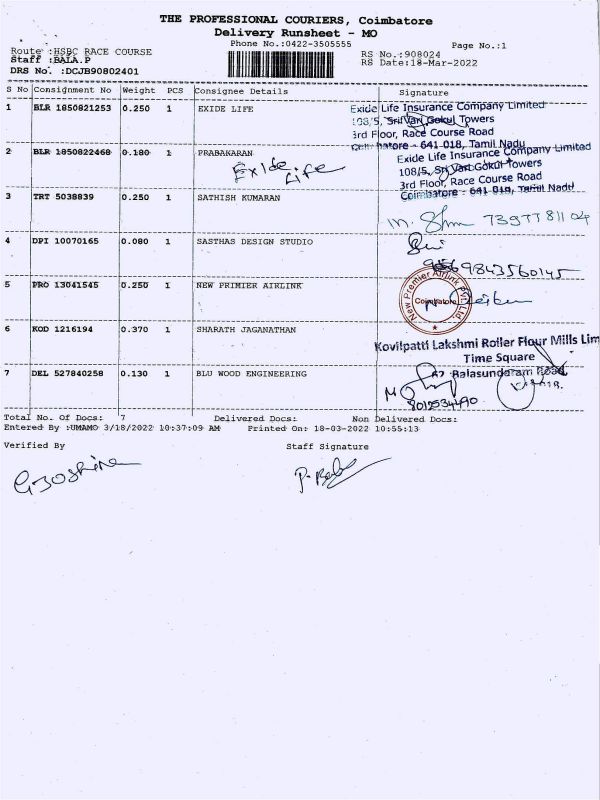 THE PROFESSIONAL COURIERS, Coimbatore
Delivery Runsheet - MO
Phone No.:0422-3505555
Page No.:1
Route :HSBC RACE COURSE
RS No.:908024
Staff :BALA.P
RS Date:18-Mar-2022
DRS No. :DCJB90802401
S No Consignment No Weight PCS Consignee Details Signature
1 BLR 1850821253 0.250 1 EXIDE LIFE
Exide Life Insurance Company Limited
108/5, Sri Vari Gokul Towers
3rd Floor, Race Course Road
Coimbatore - 641 018, Tamil Nadu
2 BLR 1850822468 0.180 1 PRABAKARAN
Exide Life
Exide Life Insurance Company Limited
108/5, Sri Vari Gokul Towers
3rd Floor, Race Course Road
Coimbatore - 641 018, Tamil Nadu
3 TRT 5038839 0.250 1 SATHISH KUMARAN
7397781104
4 DPI 10070165 0.080 1 SASTHAS DESIGN STUDIO
5 PRO 13041545 0.250 1 NEW PRIMIER AIRLINK
New Premier Airlink Pvt. Ltd.
Coimbatore
6 KOD 1216194 0.370 1 SHARATH JAGANATHAN
Kovilpatti Lakshmi Roller Flour Mills Lim
Time Square
Balasundaram Road,
7 DEL 527840258 0.130 1 BLU WOOD ENGINEERING
Total No. Of Docs: 7 Delivered Docs: Non Delivered Docs:
Entered By :UMAMO 3/18/2022 10:37:09 AM Printed On: 18-03-2022 10:55:13
Verified By Staff Signature